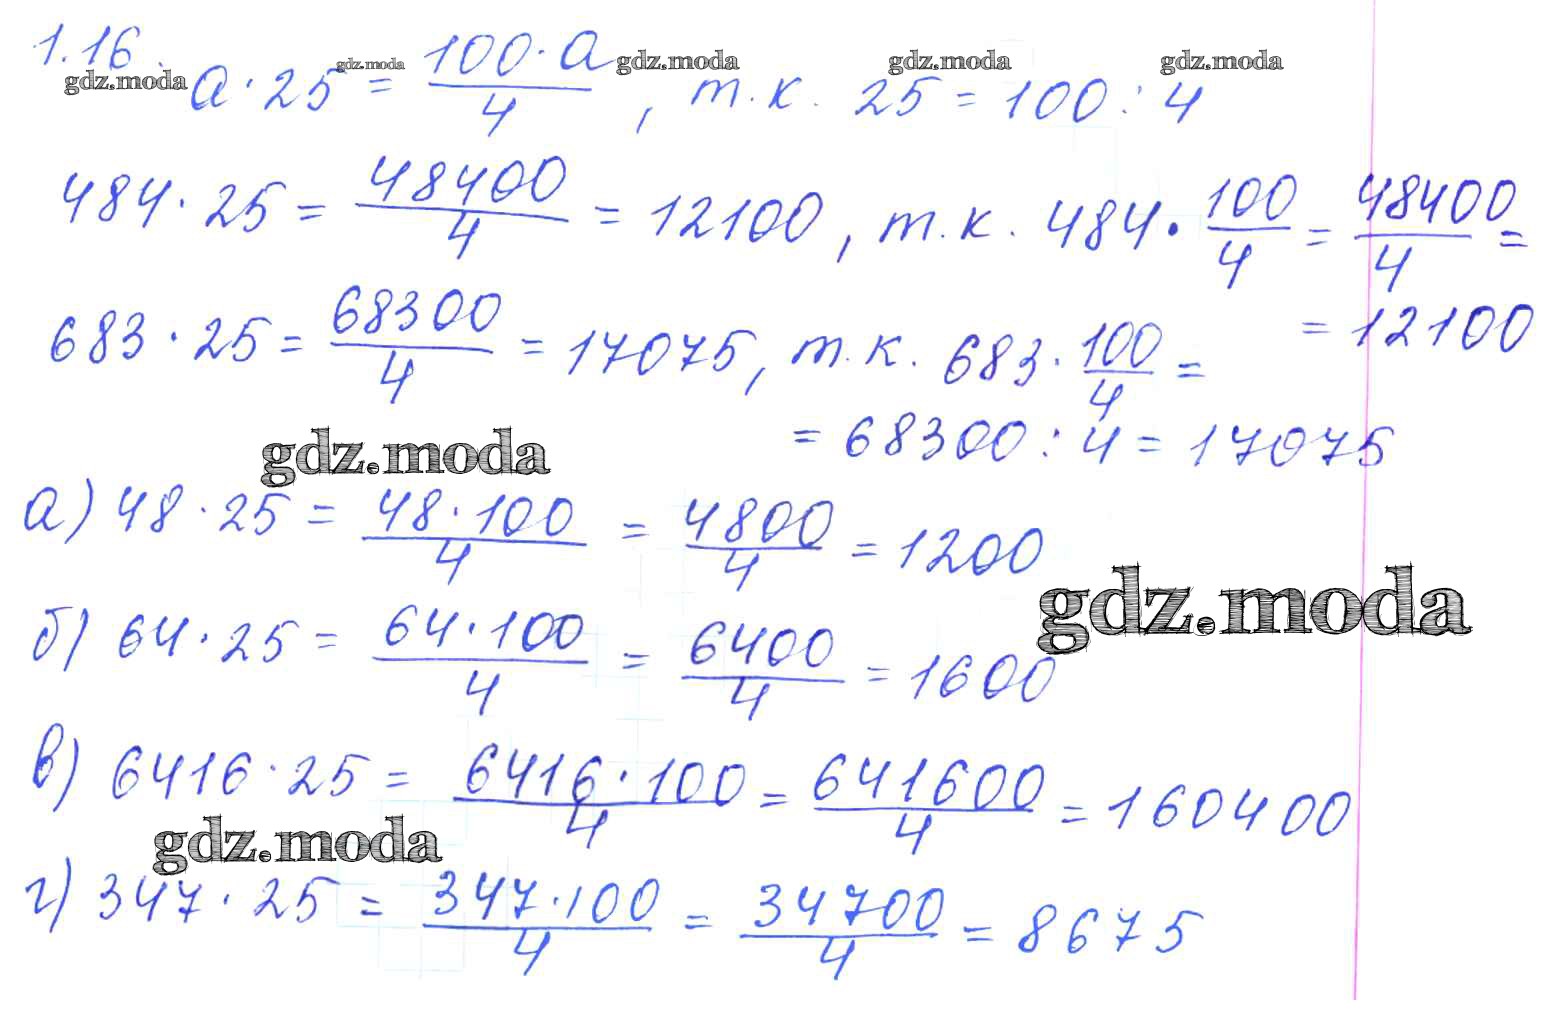 1.16.
gdz.moda gdz.moda gdz.moda gdz.moda gdz.moda
a · 25 = 100·a/4, т.к. 25 = 100 : 4
484 · 25 = 48400/4 = 12100, т.к. 484 · 100/4 = 48400/4 =
= 12100
683 · 25 = 68300/4 = 17075, т.к. 683 · 100/4 =
= 68300 : 4 = 17075
gdz.moda
а) 48 · 25 = 48·100/4 = 4800/4 = 1200
gdz.moda
б) 64 · 25 = 64·100/4 = 6400/4 = 1600
в) 6416 · 25 = 6416·100/4 = 641600/4 = 160400
gdz.moda
г) 347 · 25 = 347·100/4 = 34700/4 = 8675